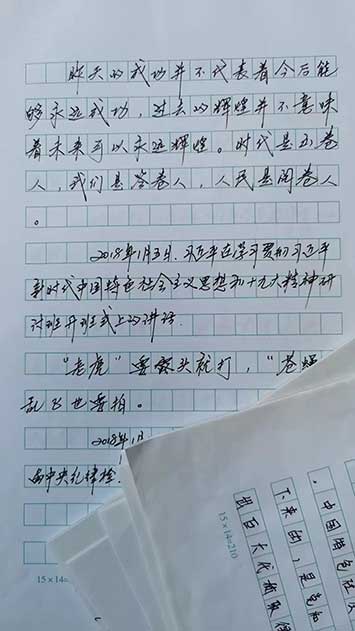 昨天的成功并不代表着今后能
够永远成功，过去的辉煌并不意味
着未来可以永远辉煌。时代是出卷
人，我们是答卷人，人民是阅卷人
。
2018年1月5日，习近平在学习贯彻习近平
新时代中国特色社会主义思想和十九大精神研
讨班开班式上的讲话
“老虎”要露头就打，“苍蝇
乱飞也要拍。
2018年1月
届中央纪律检
15×14=
15×14=210
。中国特色社
下来的，是党和
出百大代价取得